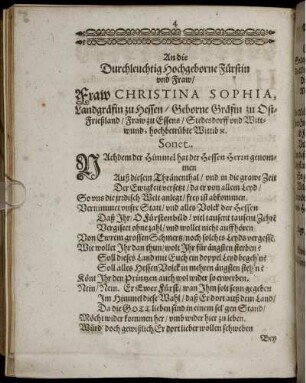 4
An die
Durchleuchtig Hochgeborne Fürstin
vnd Fraw/
Fraw CHRISTINA SOPHIA,
Landgräfin zu Hessen/ Geborne Gräfin zu Ost-
Frießland/ Fraw zu Essens/ Stedesdorff vnd Witt-
mund/ hochbetrübte Wittib ꝛc.
Sonet.
NAchdem der Himmel hat der Hessen Herrn genom-
men
Auß diesem Thränenthal/ vnd in die grawe Zeit
Der Ewigkeit versetzt/ da er von allem Leyd/
So vns die jrrdisch Welt anlegt/ frey ist abkommen.
Vernimmet vnser Statt/ vnd alles Volck der Hessen
Daß Ihr/ O Fürstenbild/ viel tausent tausent Zehrē
Vergisset ohne zahl/ vnd wollet nicht auffhören
Von Ewrem grossen Schmertz/ noch solches Leyds vergessē.
Wie wollet Ihr dan thun/ wolt Ihr für ängsten sterben?
Soll dieses Land mit Euch ein doppel Leyd begehn?
Soll alles Hessen Volck in mehren ängsten stehn?
Könt Ihr den Printzen auch wol wider so erwerben.
Nein/ Nein. Er Ewer Fürst/ wan Ihm solt seyn gegeben
Im Himmel diese Wahl/ daß Er dort auß dem Land/
Da die GOTT lieben sind in einem selgen Stand/
Möcht wider kommen her/ vmb wider hier zu leben.
Würd doch gewißlich Er dort lieber wollen schweben
Bey